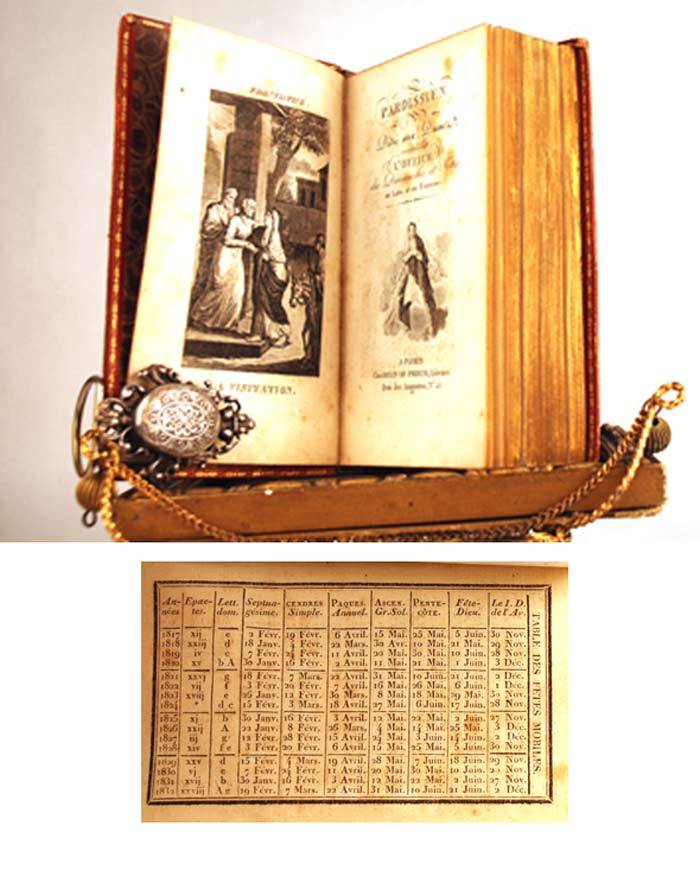 LA VISITATION.
PAROISSIEN
aux
L'OFFICE
Dimanches et
en Latin et en Français
A PARIS
Libraire
TABLE DES FETES MOBILES.
Années Epactes. Lett. dom. Septuagésime. CENDRES Simple. PAQUES. Annuel. ASCEN. Gr.Sol. PENTECÔTE. Fête-Dieu. Le I. D. de l'Av.
1817 xij e 2 Févr. 19 Févr. 6 Avril. 15 Mai. 25 Mai. 5 Juin. 30 Nov.
1818 xxiij d 18 Janv. 4 Févr. 22 Mars. 30 Avr. 10 Mai. 21 Mai. 29 Nov.
1819 iv c 7 Févr. 24 Févr. 11 Avril. 20 Mai. 30 Mai. 10 Juin. 28 Nov.
1820 xv b A 30 Janv. 16 Févr. 2 Avril. 11 Mai. 21 Mai. 1 Juin. 3 Déc.
1821 xxvj g 18 Févr. 7 Mars. 22 Avril. 31 Mai. 10 Juin. 21 Juin. 2 Déc.
1822 vij f 3 Févr. 20 Févr. 7 Avril. 16 Mai. 26 Mai. 6 Juin. 1 Déc.
1823 xviij e 26 Janv. 12 Févr. 30 Mars. 8 Mai. 18 Mai. 29 Mai. 30 Nov.
1824 * d c 15 Févr. 3 Mars. 18 Avril. 27 Mai. 6 Juin. 17 Juin. 28 Nov.
1825 xj b 30 Janv. 16 Févr. 3 Avril. 12 Mai. 22 Mai. 2 Juin. 27 Nov.
1826 xxij A 22 Janv. 8 Févr. 26 Mars. 4 Mai. 14 Mai. 25 Mai. 3 Déc.
1827 iij g 11 Févr. 28 Févr. 15 Avril. 24 Mai. 3 Juin. 14 Juin. 2 Déc.
1828 xiv f e 3 Févr. 20 Févr. 6 Avril. 15 Mai. 25 Mai. 5 Juin. 30 Nov.
1829 xxv d 15 Févr. 4 Mars. 19 Avril. 28 Mai. 7 Juin. 18 Juin. 29 Nov.
1830 vj c 7 Févr. 24 Févr. 11 Avril. 20 Mai. 30 Mai. 10 Juin. 28 Nov.
1831 xvij b 30 Janv. 16 Févr. 3 Avril. 12 Mai. 22 Mai. 2 Juin. 27 Nov.
1832 xxviij A g 19 Févr. 7 Mars. 22 Avril. 31 Mai. 10 Juin. 21 Juin. 2 Déc.